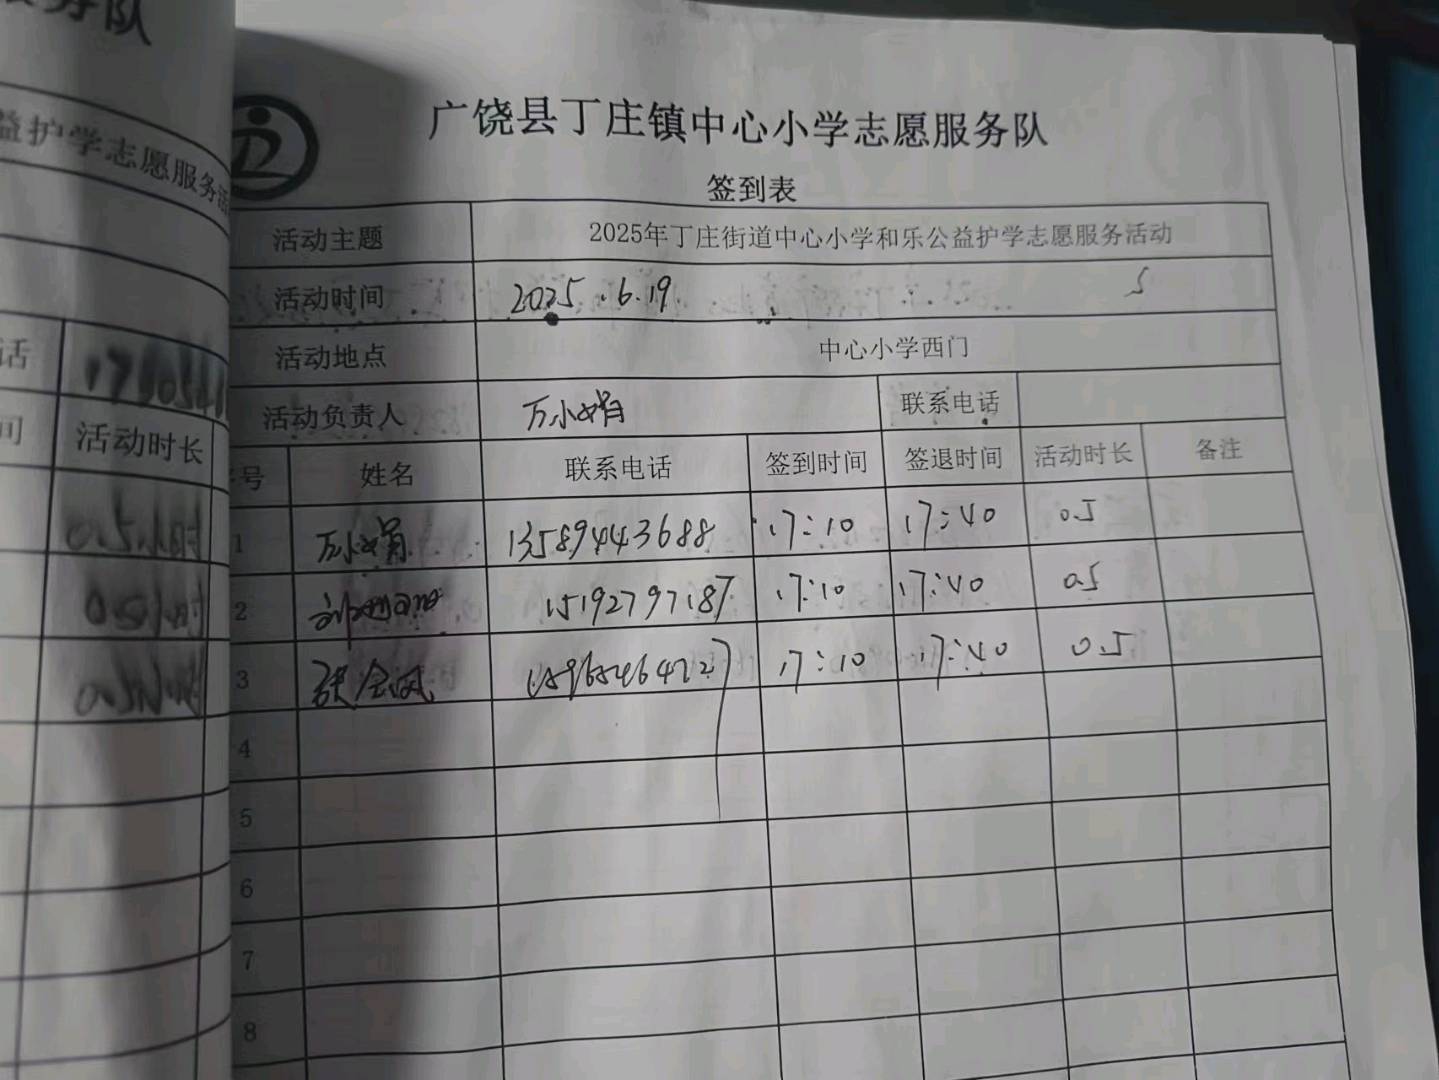 服务队
益护学志愿服务活
话
间 活动时长
0.5小时
0.5小时
0.5小时
广饶县丁庄镇中心小学志愿服务队
签到表
活动主题 2025年丁庄街道中心小学和乐公益护学志愿服务活动
活动时间 2025.6.19
活动地点 中心小学西门
活动负责人 万小娟 联系电话
序号 姓名 联系电话 签到时间 签退时间 活动时长 备注
1 万小娟 13589443688 17:10 17:40 0.5
2 15192797187 17:10 17:40 0.5
3 17:10 17:40 0.5
4
5
6
7
8